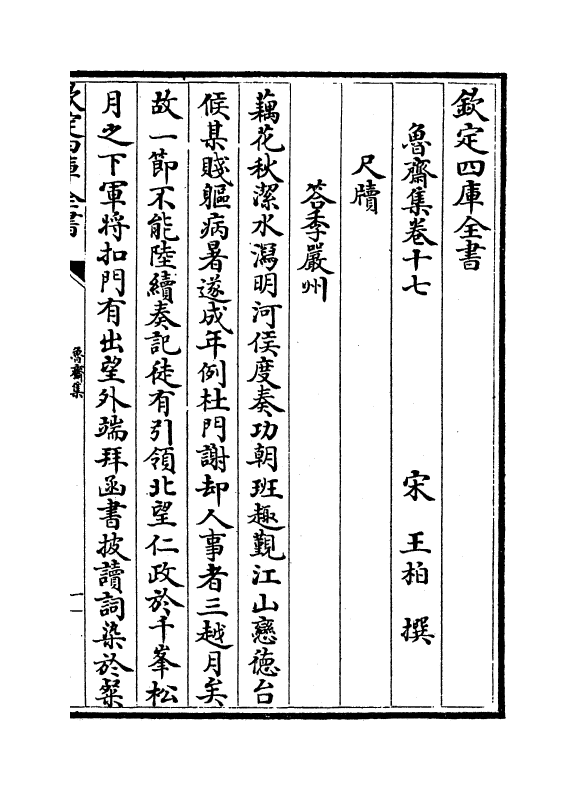 欽定四庫全書
魯齋集卷十七
宋 王柏 撰
尺牘
答季嚴州
藕花秋潔水瀉明河侯度奏功朝班趣覲江山戀徳台
候某賤軀病暑遂成年例杜門謝却人事者三越月矣
故一節不能陸續奏記徒有引領北望仁政於千峯松
月之下軍将扣門有出望外端拜函書披讀詞染於粲
欽定四庫全書
魯齋集
一